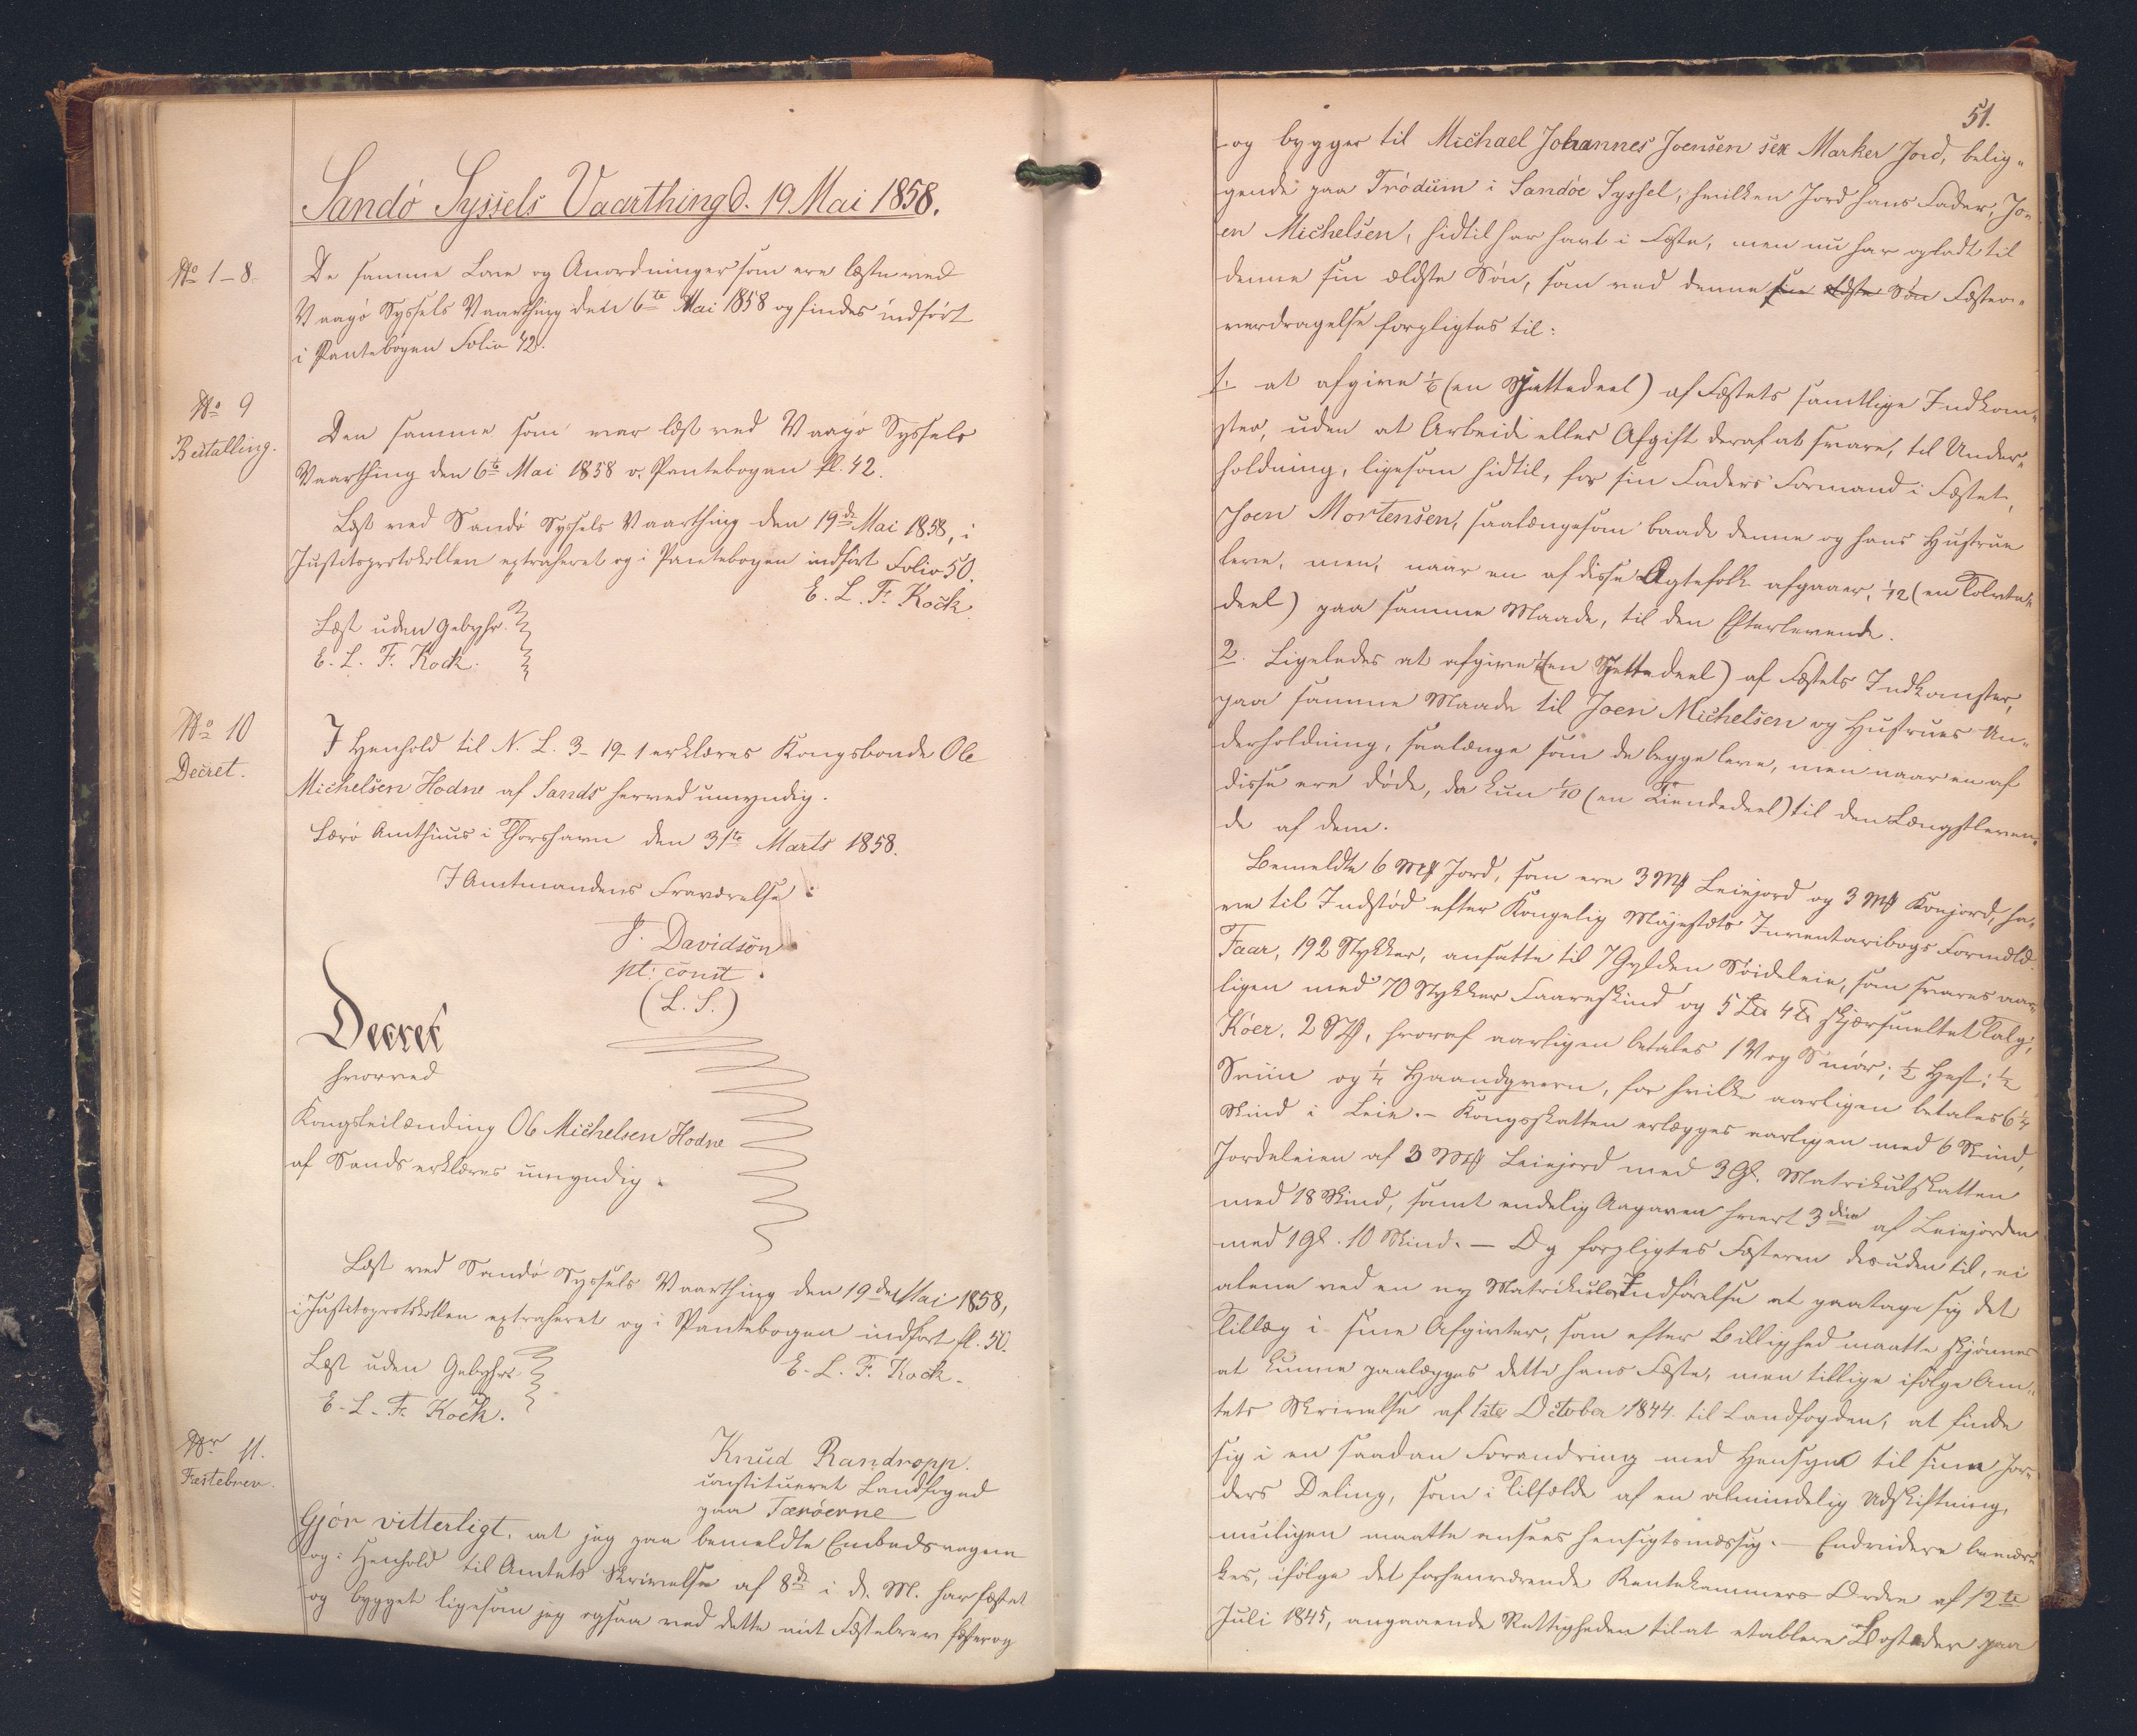 Sandö Syssels Vaarthing d. 19 Mai 1858.
No 1-8.
De samme Love og Anordninger som ere læste ved
Vaagö Syssels Vaarthing den 6te Mai 1858 og findes indfört
i Pantebogen Folio 42.
No 9
Bestalling.
Den samme som var læst ved Vaagö Syssels
Vaarthing den 6te Mai 1858 v. Pantebogen fl. 42.
Læst ved Sandö Syssels Vaarthing den 19de Mai 1858, i
Justitsprotokollen extraheret og i Pantebogen indfört Folio 50.
E. L. F. Kock.
Læst uden Gebyhr.
E. L. F. Kock.
No 10
Decret.
I Henhold til N. L. 3-19-1 erklæres Kongsbonde Ole
Michelsen Hodne af Sands herved umyndig.
Færö Amthuus i Thorshavn den 31te Marts 1858.
I Amtmandens Fraværelse:
J. Davidson
pt. const.
(L. S.)
Decret
hvorved
Kongsleilænding Ole Michelsen Hodne
af Sands erklæres umyndig.
Læst ved Sandö Syssels Vaarthing den 19de Mai 1858,
i Justitsprotokollen extraheret og i Pantebogen indfört fl. 50.
E. L. F. Kock.
Læst uden Gebyhr.
E. L. F. Kock.
Nr 11.
Fæstebrev.
Knud Randropp.
constitueret Landfoged
paa Færöerne
Gjör vitterligt, at jeg paa bemeldte Embedsvegne
og i Henhold til Amtets Skrivelse af 8de i d. M. har fæstet
og bygget ligesom jeg ogsaa ved dette mit Fæstebrev fæster og
51.
og bygger til Michael Johannes Joensen sex Marker Jord, belig-
gende paa Tródum i Sandöe Syssel, hvilken Jord hans Fader, Jo-
en Michelsen, hidtil har havt i Fæste, men nu har opladt til
denne sin ældste Sön, som ved denne sin ældste Sön Fæsteo-
verdragelse forpligtes til:
1. at afgive 1/6 (en Sjettedeel) af Fæstets samtlige Indkom-
ster, uden at Arbeide eller Afgift deraf at svare, til Under-
holdning, ligesom hidtil, for sin Faders Formand i Fæstet,
Joen Mortensen, saalænge som baade denne og hans Hustrue
leve, men, naar en af disse Ægtefolk afgaaer, 1/12 (en Tolvte-
deel) paa samme Maade, til den Efterlevende.
2. Ligeledes at afgive 1/6 (en Sjettedeel) af Fæstets Indkomster,
paa samme Maade til Joen Michelsen og Hustrues Un-
derholdning, saalænge som de begge leve, men naar en af
disse ere döde, da kun 1/10 (en Tiendedeel) til den Længstleven-
de af dem.
Bemeldte 6 Mk Jord, som ere 3 Mk Leiejord og 3 Mk Konjord, ha-
ve til Indstöd efter Kongelig Majestæts Inventariibogs Formæld.
Faar, 192 Stykker, ansatte til 7 Gylden Söideleie, som svares aar-
ligen med 70 Stykker Faareskind og 5 L℔ 4 ℔ skjærsmeltet Talg;
Köer, 2 Stk, hvoraf aarligen betales 1 Vog Smör; ½ Hest; ½
Sviin og ¼ Haandqvern, for hvilke aarligen betales 6¼
Skind i Leie. - Kongsskatten erlægges aarligen med 6 Skind,
Jordeleien af 3 Mk Leiejord med 3 Gl. Matrikulskatten
med 18 Skind, samt endelig Aagaven hvert 3die af Leiejorden
med 1 Gl. 10 Skind. - Og forpligtes Fæsteren desuden til, ei
alene ved en ny Matrikuls Indförelse at paatage sig det
Tillæg i sine Afgivter, som efter Billighed maatte skjönnes
at kunne paalægges dette hans Fæste, men tillige ifölge Am-
tets Skrivelse af 1ste October 1844 til Landfogden, at finde
sig i en saadan Forandring med Hensyn til sine Jor-
ders Deling, som i Tilfælde af en almindelig Udskiftning,
muligen maatte ansees hensigtsmæssig. - Endvidere bemær-
kes, ifölge det forhenværende Rentekammers Ordre af 12te
Juli 1845, angaaende Rettigheden til at etablere Bosteder paa